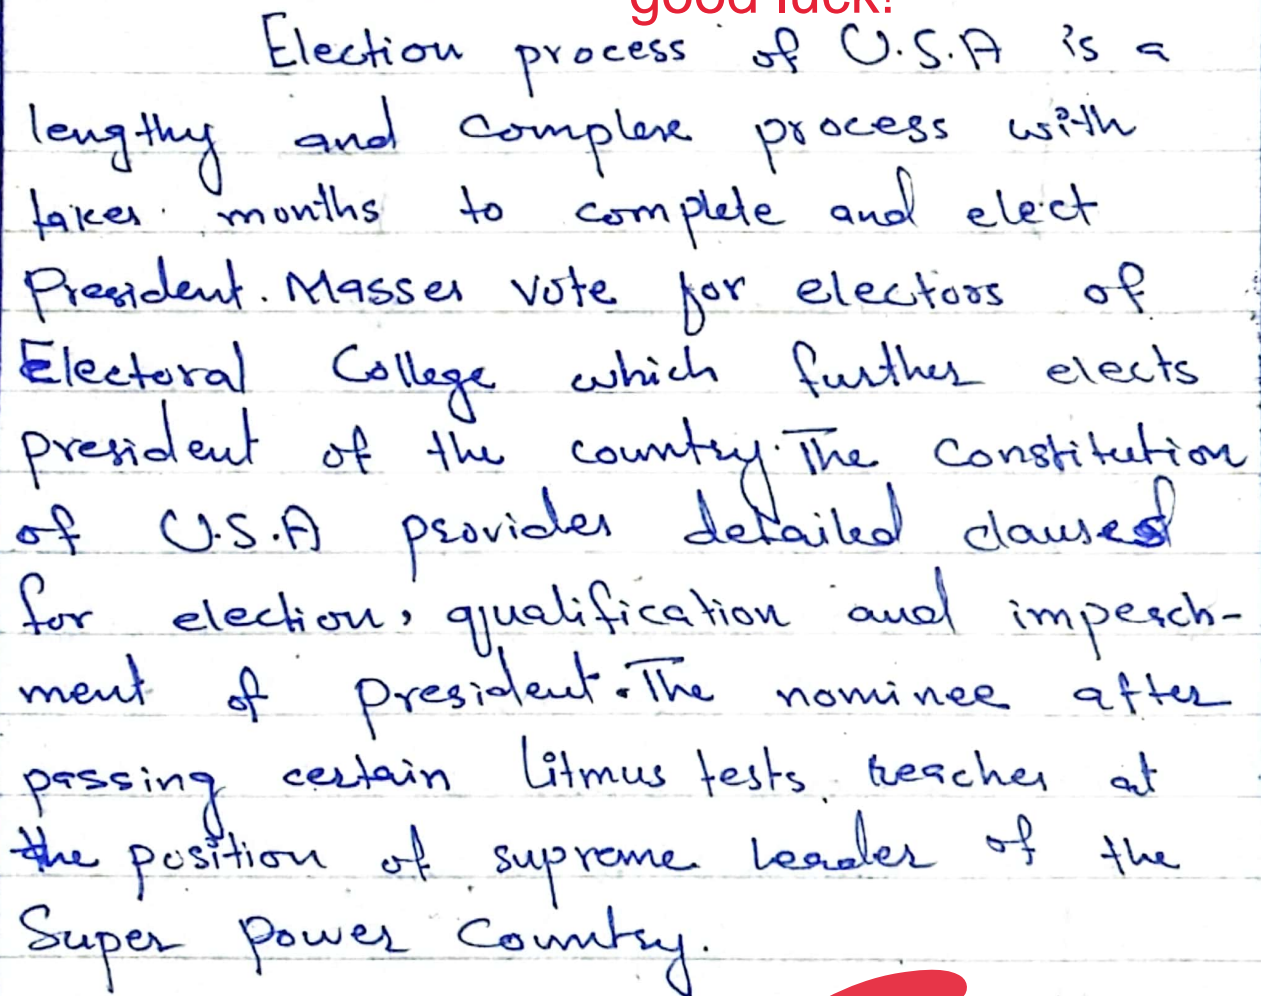 good luck!
Election process of U.S.A is a
lengthy and complexe process with
takes months to complete and elect
President. Masses vote for electors of
Electoral College which further elects
president of the country. The Constitution
of U.S.A provides detailed clauses
for election, qualification and impeach-
ment of president. The nominee after
passing certain litmus tests, reaches at
the position of supreme leader of the
Super Power Country.